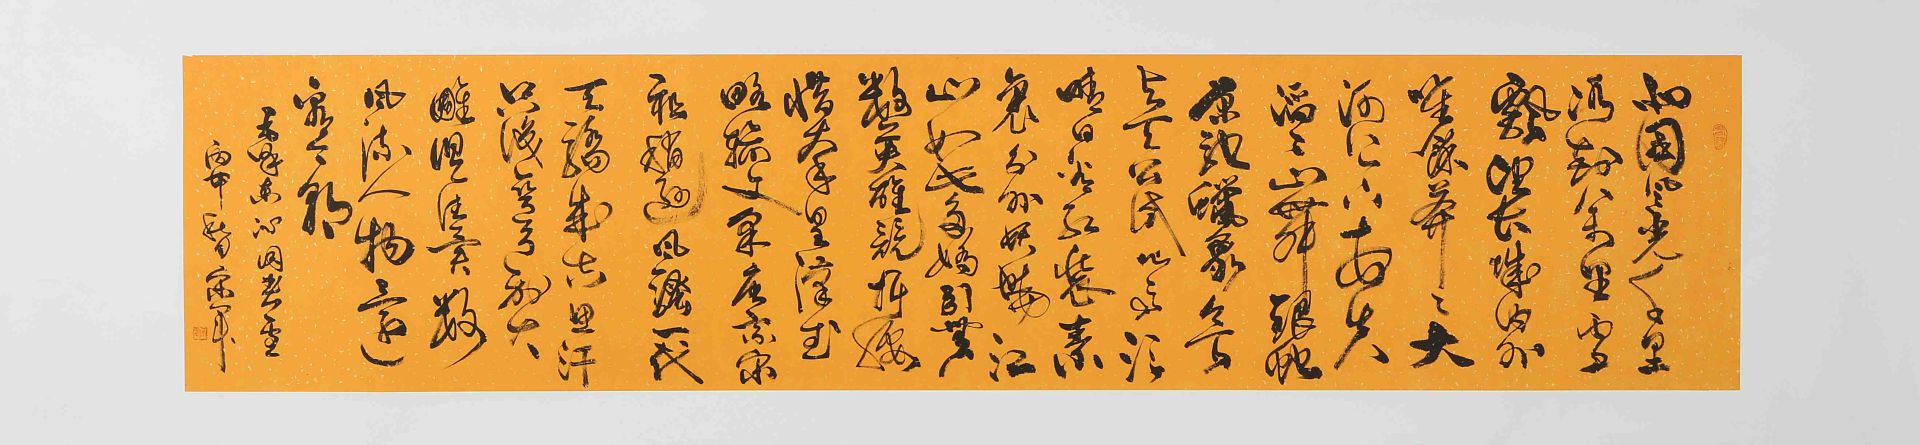 北国风光千里
冰封万里雪
飘望长城内外
唯馀莽々大
河上下顿失
滔々山舞银蛇
原驰蠟象欲
与天公试比高须
晴日看红装素
裹分外妖娆江
山如此多娇引无
数英雄竞折腰
惜秦皇汉武
略输文采唐宗宋
祖稍逊风骚一代
天骄成吉思汗
只识弯弓射大
雕俱往矣数
风流人物还
看今朝
毛泽东沁园春雪
丙申